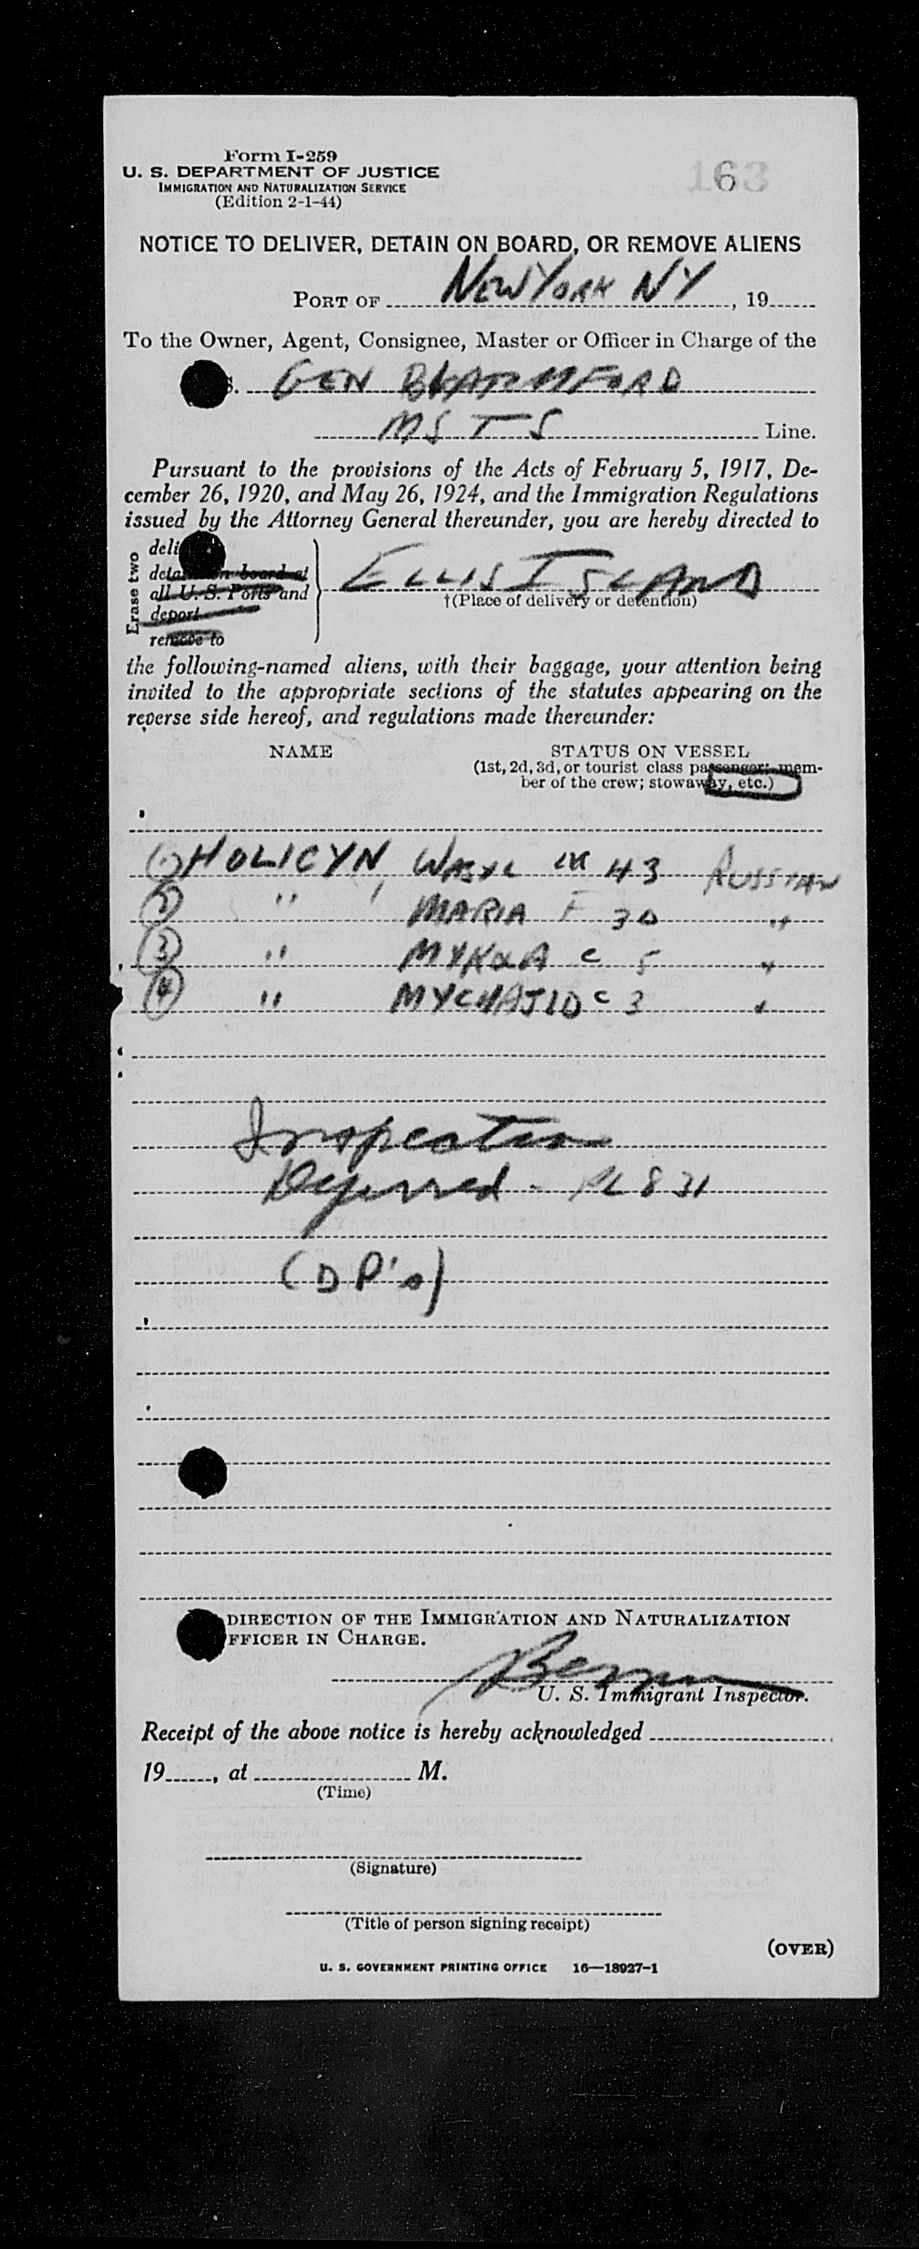 Form I-259
U. S. DEPARTMENT OF JUSTICE
IMMIGRATION AND NATURALIZATION SERVICE
(Edition 2-1-44)
163
NOTICE TO DELIVER, DETAIN ON BOARD, OR REMOVE ALIENS
PORT OF NEW YORK NY, 19
To the Owner, Agent, Consignee, Master or Officer in Charge of the
S. GEN
MSTS Line.
Pursuant to the provisions of the Acts of February 5, 1917, De-
cember 26, 1920, and May 26, 1924, and the Immigration Regulations
issued by the Attorney General thereunder, you are hereby directed to
Erase two
deli
deta n board at
all U. S. Ports and
deport
remove to
ELLIS ISLAND
†(Place of delivery or detention)
the following-named aliens, with their baggage, your attention being
invited to the appropriate sections of the statutes appearing on the
reverse side hereof, and regulations made thereunder:
NAME STATUS ON VESSEL
(1st, 2d, 3d, or tourist class passenger; mem-
ber of the crew; stowaway, etc.)
(1) HOLICYN WASYL M 43 RUSSIAN
(2) " ' MARIA F 30 "
(3) " MYKOLA C 5 "
(4) " C 3 "
Inspection
Deferred - PL 831
(DP's)
DIRECTION OF THE IMMIGRATION AND NATURALIZATION
FFICER IN CHARGE.
U. S. Immigrant Inspector.
Receipt of the above notice is hereby acknowledged
19, at M.
(Time)
(Signature)
(Title of person signing receipt)
(OVER)
U. S. GOVERNMENT PRINTING OFFICE 16—18927-1